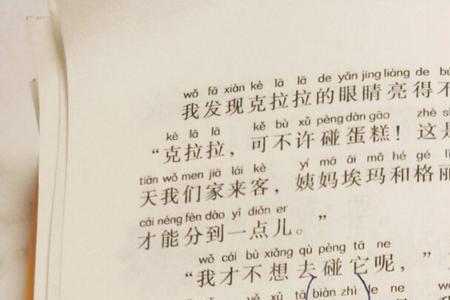 wǒ fā xiàn kè lā lā de yǎn jing liàng de
我发现克拉拉的眼睛亮得不
kè lā lā kě bù xǔ pèng dàn gāo
“克拉拉，可不许碰蛋糕！这是
tiān wǒ men jiā lái kè yí mā āi mǎ hé gé
天我们家来客，姨妈埃玛和格丽
cái néng fēn dào yī diǎn er
才能分到一点儿。”
wǒ cái bù xiǎng qù pèng tā ne
“我才不想去碰它呢，”
xǔ tā biàn zhì le ne